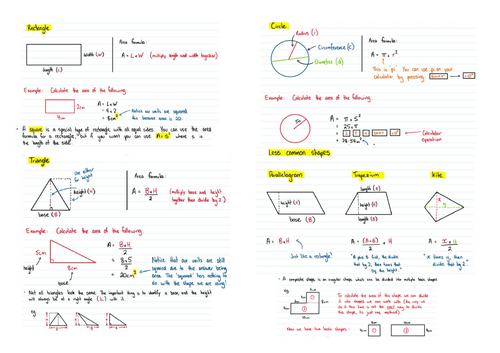 Rectangle
width (w)
length (L)
Area formula:
A = L×W (multiply length and width together)
Example: Calculate the area of the following.
2cm
4cm
A = L×W
= 4×2
= 8cm²
Notice our units are squared
this because area is 2D.
• A square is a special type of rectangle with all equal sides. You can use the area
formula for a rectangle, but if you want you can use A = s² where s is
the length of the side.
Triangle
Use either
for height
height (H)
base (B)
Area formula:
A = B×H
2
(multiply base and height
together then divide by 2)
Example: Calculate the area of the following.
5cm
height
8cm
base
A = B×H
2
= 8×5
2
= 20cm²
Notice that our units are still
squared due to the answer being
area. The squared has nothing to
do with the shape we are using!
• Not all triangles look the same. The important thing is to identify a base, and the height
will always be at a right angle (∟) with it.
eg
Circle:
Radius (r)
Circumference (C)
Diameter (d)
Area formula:
A = π × r²
This is 'pi'. You can use pi on your
calculator by pressing
Example: Calculate the area of the following.
5m
A = π × 5²
= 25π
= 78.54m²
Calculator
operation
Less common shapes
Parallelogram
Trapezium
Kite
height (H)
base (B)
length (A)
height (H)
length (B)
x
y
A = B×H
A = (A+B) × H
2
A = x × y
2
"Just like a rectangle!"
"A plus B first, then divide
that by 2, then times that
by the height."
"x times y, then
divide that by 2."
• A composite shape is an irregular shape which can be divided into multiple basic shapes.
eg
To calculate the area of this shape we can divide
it into shapes we can work with (the way we
do it this time is not the only way to divide
this shape, its just one method).
Now we have two basic shapes:
1
2